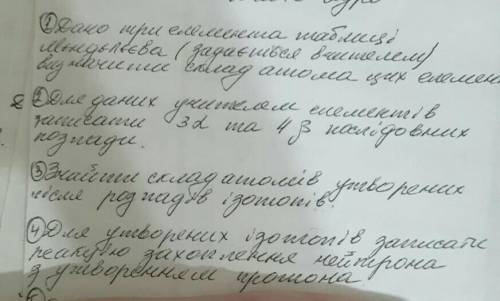 ① Дано три елемента таблиці
Мендєлєєва (задається вчителем)
визначити склад атома цих елемен
② Для даних учителем елементів
записати 3α та 4β послідовних
розпади.
③ Знайти склад атомів утворених
після розпадів ізотопів.
④ Для утворених ізотопів записати
реакцію захоплення нейтрона
з утворенням протона